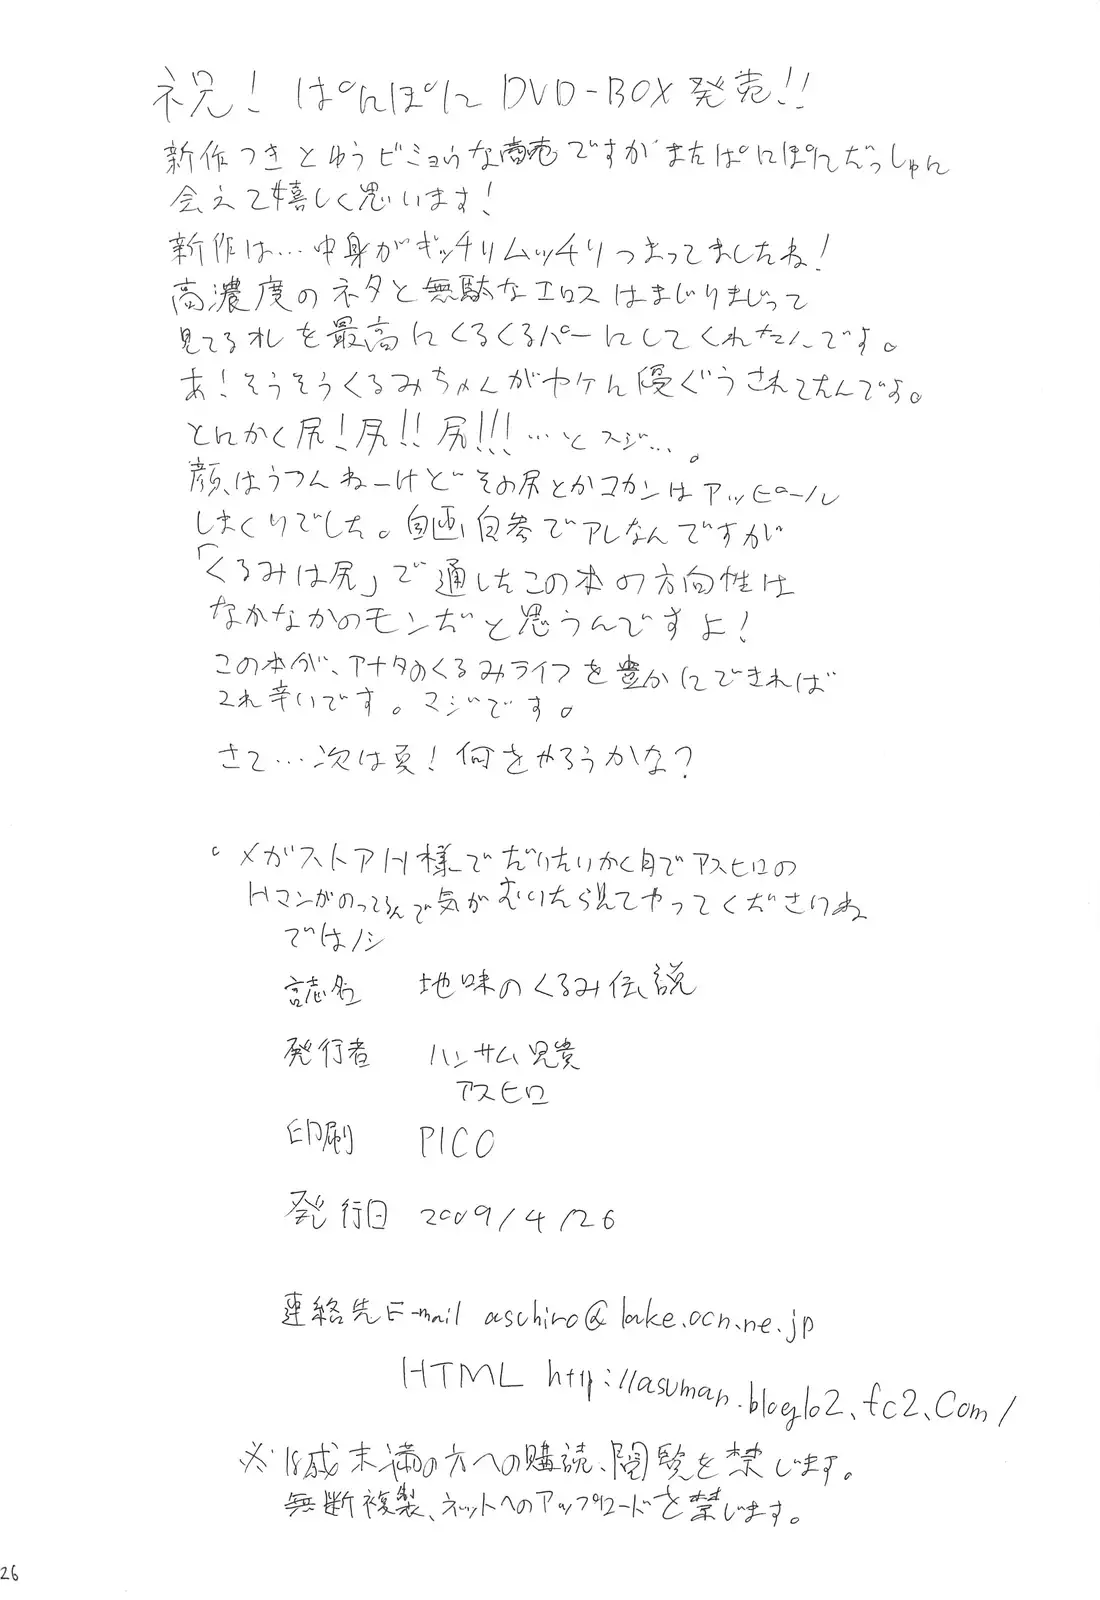 祝! ぱにぽに DVD-BOX 発売!!
新作つきとゆうビミョウな商売ですがまたぱにぽにだっしゅに
会えて嬉しく思います!
新作は…中身がギッチリムッチリつまってましたね!
高濃度のネタと無駄なエロスはまじりまじって
見てるオレを最高にくるくるパーにしてくれたんです。
あ!そうそうくるみちゃんがヤケに優ぐうされてたんですよ。
とにかく尻!尻!!尻!!!…とスジ…。
顔はうつんねーけどその尻とかコカンはアッピール
しまくりでした。自画自参でアレなんですが
「くるみは尻」で通したこの本の方向性は
なかなかのモンだと思うんですよ!
この本が、アナタのくるみライフを豊かにできれば
これ幸いです。マジです。
さて…次は夏!何をやろうかな?
。メガストアH様でだいたいかく月でアスヒロの
Hマンガのってるんで気がむいたら見てやってくださいね
ではノシ
誌名 地味のくるみ伝説
発行者 ハンサム兄貴
アスヒロ
印刷 PICO
発行日 2009/4/26
連絡先 E-mail aschiro@lake.ocn.ne.jp
HTML http://asuman.blog102.fc2.com/
※18歳未満の方への購読、閲覧を禁じます。
無断複製、ネットへのアップロードを禁じます。
26